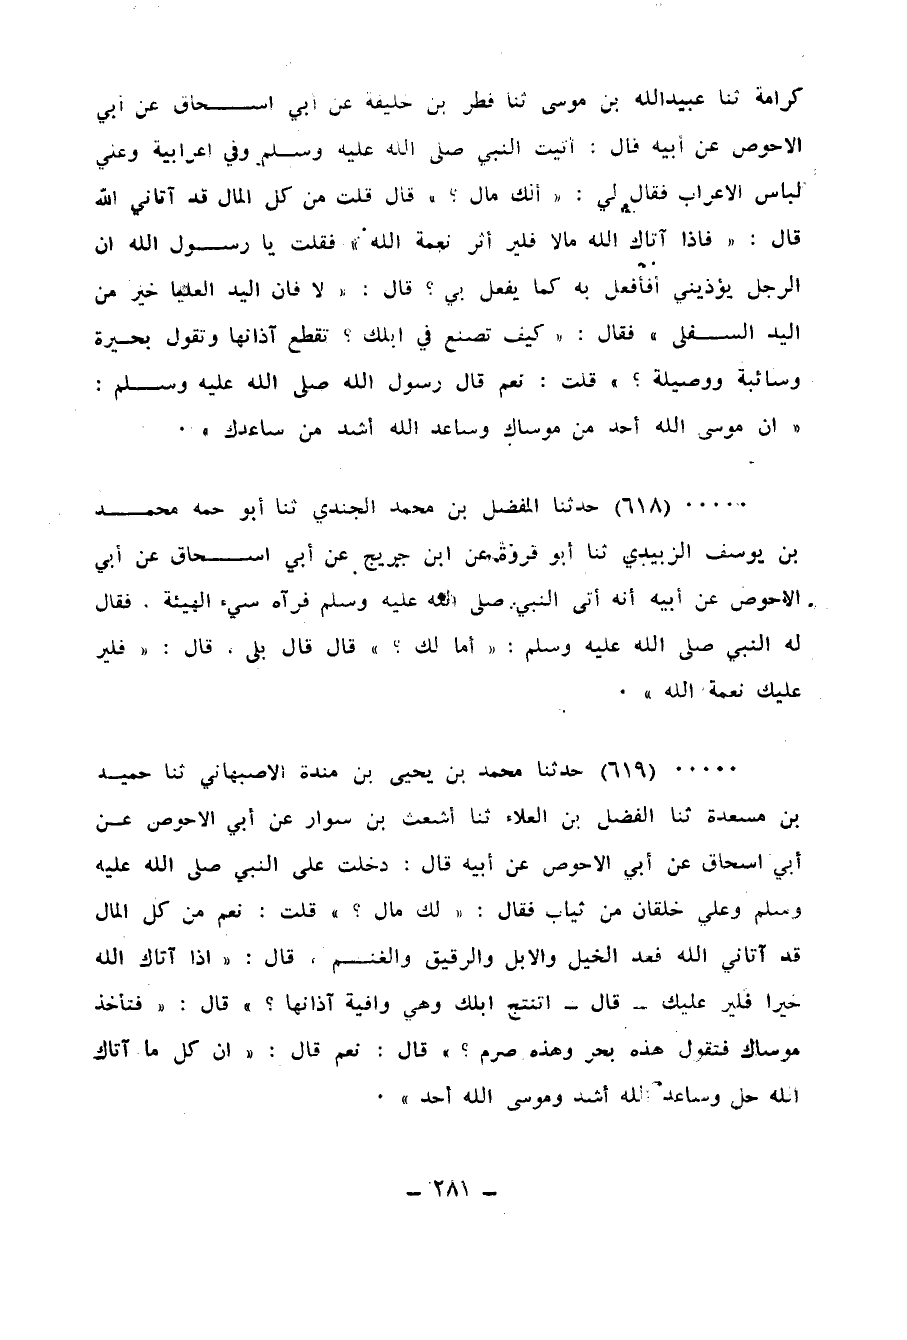 كرامة ثنا عبيدالله بن موسى ثنا فطر بن خليفة عن أبي اسحاق عن أبي
الاحوص عن أبيه قال : أتيت النبي صلى الله عليه وسلم وفي اعرابية وعلي
لباس الاعراب فقال لي : « ألك مال ؟ » قال قلت من كل المال قد آتاني الله
قال : « فاذا آتاك الله مالا فلير أثر نعمة الله » فقلت يا رسول الله ان
الرجل يؤذيني أفأفعل به كما يفعل بي ؟ قال : « لا فان اليد العليا خير من
اليد السفلى » فقال : « كيف تصنع في ابلك ؟ تقطع آذانها وتقول بحيرة
وسائبة ووصيلة ؟ » قلت : نعم قال رسول الله صلى الله عليه وسلم :
« ان موسى الله أحد من موساك وساعد الله أشد من ساعدك » .
..... (٦١٨) حدثنا المفضل بن محمد الجندي ثنا أبو حمه محمد
بن يوسف الزبيدي ثنا أبو قرة عن ابن جريج عن أبي اسحاق عن أبي
الاحوص عن أبيه أنه أتى النبي صلى الله عليه وسلم فرآه سيء الهيئة . فقال
له النبي صلى الله عليه وسلم : « أما لك ؟ » قال قال بلى . قال : « فلير
عليك نعمة الله » .
..... (٦١٩) حدثنا محمد بن يحيى بن مندة الاصبهاني ثنا حميد
بن مسعدة ثنا الفضل بن العلاء ثنا أشعث بن سوار عن أبي الاحوص عن
أبي اسحاق عن أبي الاحوص عن أبيه قال : دخلت على النبي صلى الله عليه
وسلم وعلي خلقان من ثياب فقال : « لك مال ؟ » قلت : نعم من كل المال
قد آتاني الله فعد الخيل والابل والرقيق والغنم . قال : « اذا آتاك الله
خيرا فلير عليك – قال – اتنتج ابلك وهي وافية آذانها ؟ » قال : « فتأخذ
موساك فتقول هذه بحر وهذه صرم ؟ » قال : نعم قال : « ان كل ما آتاك
الله حل وساعد الله أشد وموسى الله أحد » .
– ٢٨١ –